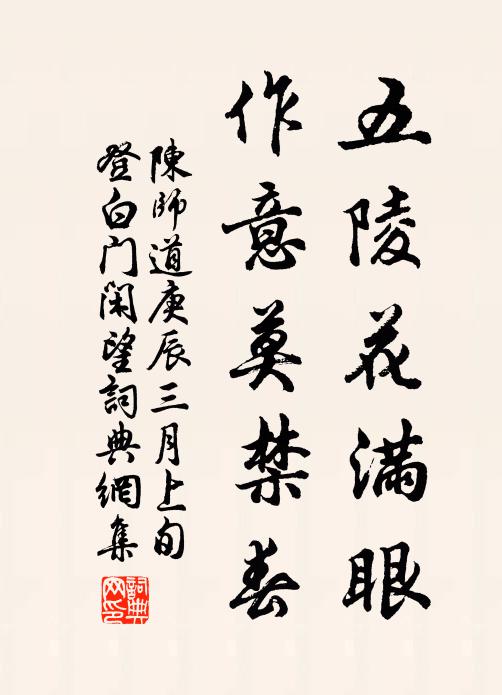 五陵花滿眼
作意莫禁春
陳師道庚辰三月上旬
登白门闲望詞典網集
詞典网印